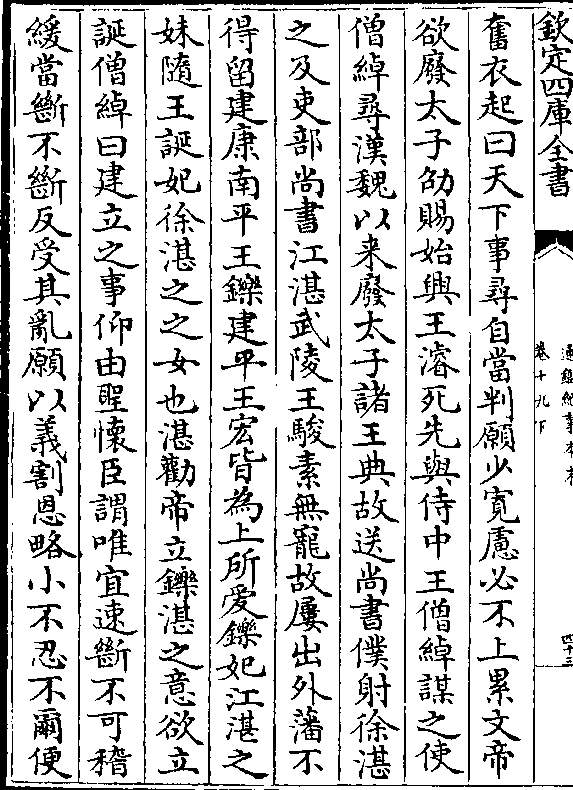 欽定四庫全書
通鑑紀事本末
卷十九下
四十三
奮衣起曰天下事尋自當判願少寛慮必不上累文帝
欲廢太子劭賜始興王濬死先與侍中王僧綽謀之使
僧綽尋漢魏以来廢太子諸王典故送尚書僕射徐湛
之及吏部尚書江湛武陵王駿素無寵故屢出外藩不
得留建康南平王鑠建平王宏皆為上所愛鑠妃江湛之
妹隨王誕妃徐湛之之女也湛勸帝立鑠湛之意欲立
誕僧綽曰建立之事仰由聖懷臣謂唯宜速斷不可稽
緩當斷不斷反受其亂願以義割恩略小不忍不爾便